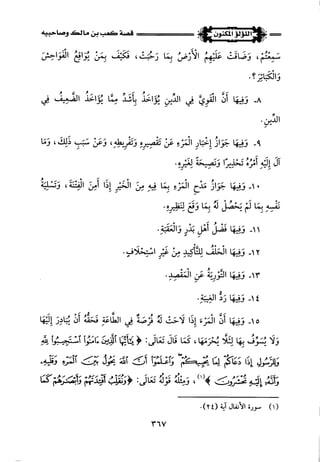 اللؤلؤ المكنون قصة كعب بن مالك وصاحبيه
سمعتم، وضاقت عليهم الأرض بما رحبت، فكيف بمن يواقع الفواحش
والكبائر؟.
٨- وفيها أن القوي في الدين يؤاخذ بأشد مما يؤاخذ الضعيف في
الدين.
٩- وفيها جواز إخبار المرء عن تقصيره وتفريطه، وعن سبب ذلك، وما
آل إليه أمره تحذيرا ونصيحة لغيره.
١٠- وفيها جواز مدح المرء بما فيه من الخير إذا أمن الفتنة، وتسلية
نفسه بما لم يحصل له بما وقع لنظيره.
١١- وفيها فضل أهل بدر والعقبة.
١٢- وفيها الحلف للتأكيد من غير استحلاف.
١٣- وفيها التورية عن المقصد.
١٤- وفيها رد الغيبة.
١٥- وفيها أن المرء إذا لاحت له فرصة في الطاعة فحقه أن يبادر إليها
ولا يسوف بها لئلا يحرمها، كما قال تعالى: ﴿يا أيها الذين آمنوا استجيبوا لله
وللرسول إذا دعاكم لما يحييكم واعلموا أن الله يحول بين المرء وقلبه
وأنه إليه تحشرون﴾(١)، ومثله قوله تعالى: ﴿ونقلب أفئدتهم وأبصارهم كما
(١) سورة الأنفال آية (٢٤).
٣٦٧